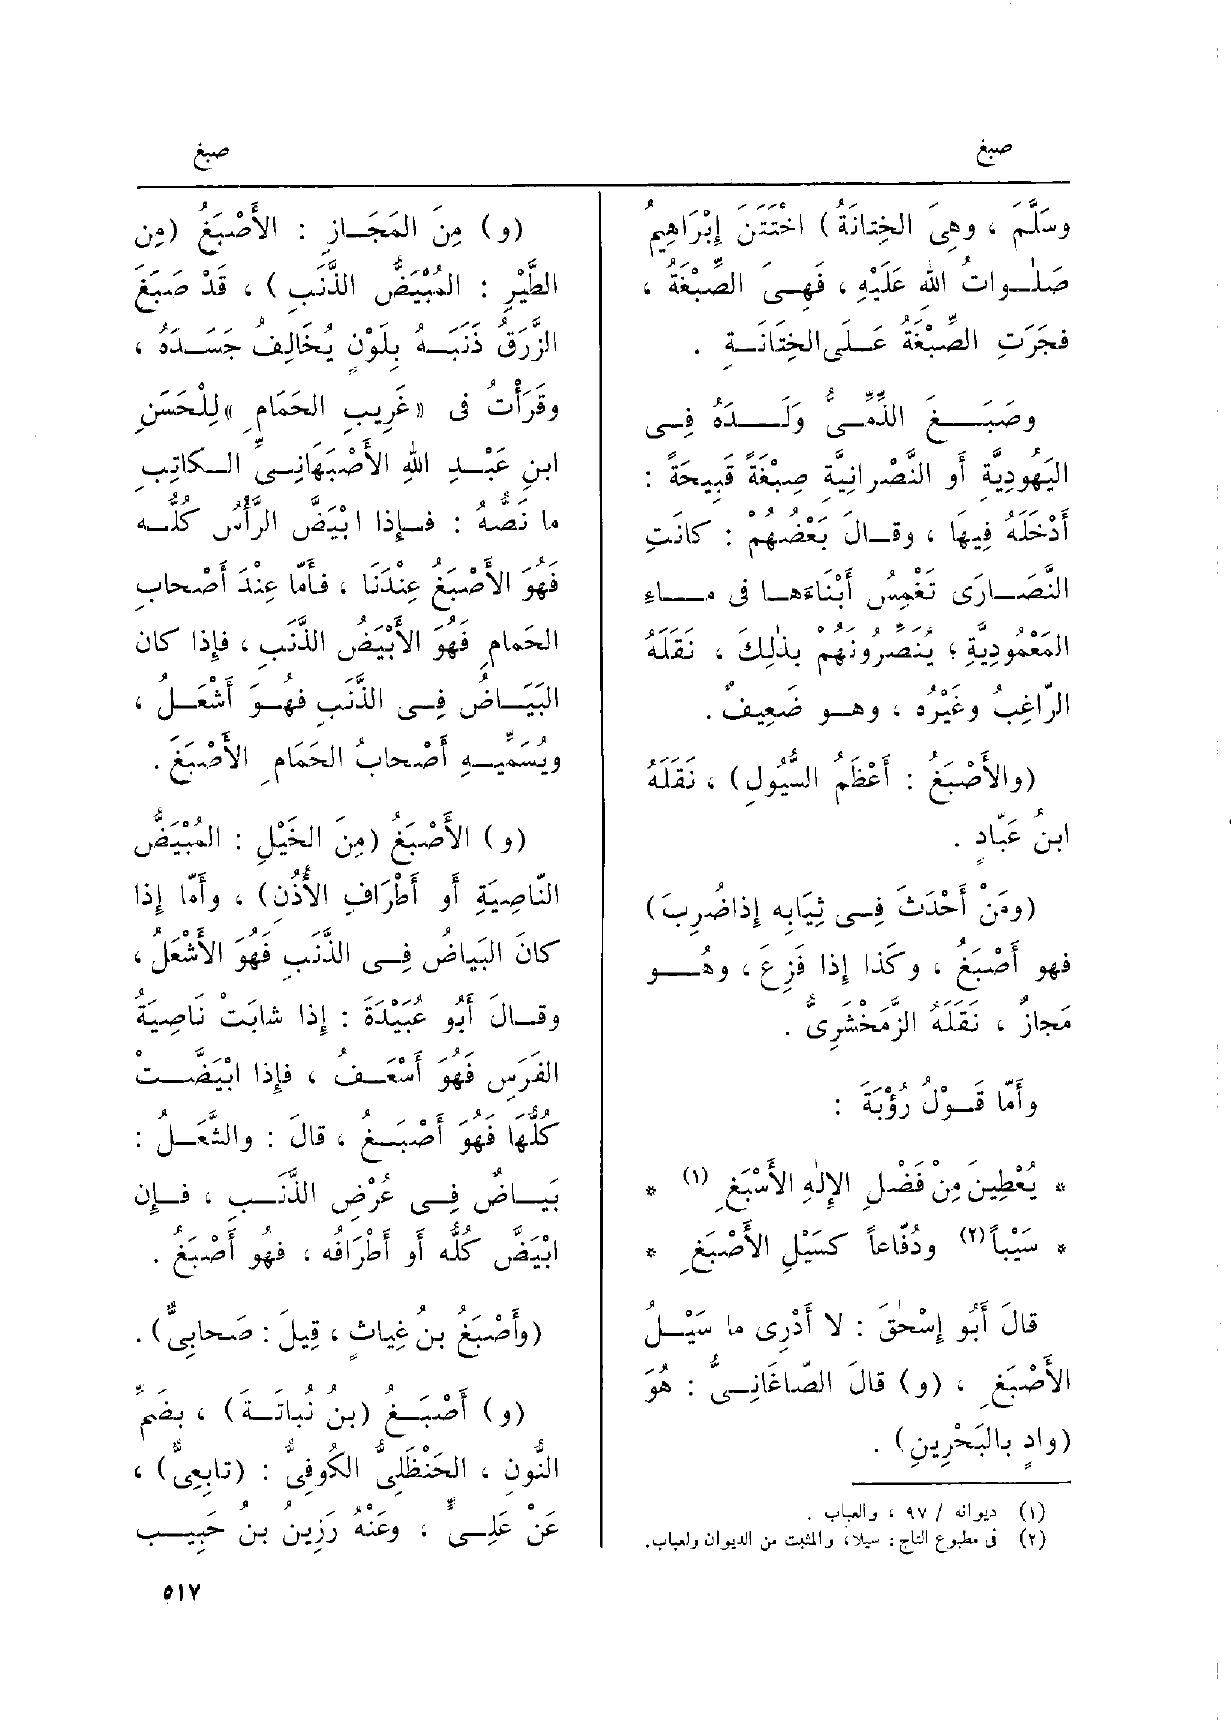 صبغ
صبغ
وسَلَّمَ ، وهِىَ الخِتانَةُ ) اخْتَتَنَ إِبْرَاهِيمُ
صَلَـواتُ الله عَلَيْهِ ، فَهِـىَ الصِّبْغَةُ ،
فَجَرَتِ الصِّبْغَةُ عَـلَى الخِتَانَـةِ .
وصَبَـــغَ الذِّمِّـىُّ وَلَـــدَهُ فِـى
اليَهُودِيَّةِ أَو النَّصْرانِيَّةِ صِبْغَةً قَبِيحَةً :
أَدْخَلَهُ فِيهَا ، وقـالَ بَعْضُهُمْ : كَانَتِ
النَّصَـارَى تَغْمِسُ أَبْنَاءَهـا فى مــاءِ
المَعْمُودِيَّةِ ؛ يُنَصِّرُونَهُمْ بِذٰلِكَ ، نَقَلَهُ
الرّاغِبُ وغَيْرُه ، وهـو ضَعِيفٌ .
(والأَصْبَغُ : أَعْظَمُ السُّيُولِ) ، نَقَلَهُ
ابنُ عَبّادٍ .
(ومَنْ أَحْدَثَ فِـى ثِيَابِه إِذاضُرِبَ)
فهو أَصْبَغُ ، وكَذا إِذا فَزِعَ ، وهُـــو
مَجازٌ ، نَقَلَهُ الزَّمَخْشَرِىُّ .
وأَمّا قَـوْلُ رُؤْبَةَ :
* يُعْطِينَ مِنْ فَضْلِ الإِلٰهِ الأَسْبَغِ (١) *
* سَيْباً(٢) ودُفّاعاً كسَيْلِ الأَصْبَغِ *
قالَ أَبُو إِسْحٰقَ : لا أَدْرِى ما سَيْـلُ
الأَصْبَغِ ، (و) قالَ الصّاغَانِـىُّ : هُوَ
(وادٍ بالبَحْرَينِ) .
(١) ديوانه / ٩٧ ، والعباب .
(٢) فى مطبوع التاج : سيلا، والمثبت من الديوان ولعباب.
(و) مِنَ المَجَـازِ : الأَصْبَغُ (مِن
الطَّيْرِ : المُبْيَضُّ الذَّنَبِ ) ، قَدْ صَبَغَ
الزَّرَقُ ذَنَبَـهُ بِلَوْنٍ يُخَالِفُ جَسَـدَهُ ،
وقَرَأْتُ فى «غَرِيبِ الحَمَامِ »لِلْحَسَنِ
ابنِ عَبْـدِ اللهِ الأَصْبَهانِـىِّ الـكاتِبِ
ما نَصُّهُ : فـإِذا ابْيَضَّ الرَّأْسُ كُلُّـه
فَهُوَ الأَصْبَغُ عِنْدَنَا ، فأَمّا عِنْدَ أَصْحابِ
الحَمامِ فَهُوَ الأَبْيَضُ الذَّنَبِ ، فإِذا كان
البَيَـاضُ فِـى الذَّنَبِ فهُـوَ أَشْعَـلُ ،
ويُسَمِّيـهِ أَصْحابُ الحَمَامِ الأَصْبَغَ .
(و) الأَصْبَغُ (مِنَ الخَيْلِ : المُبْيَضُّ
النّاصِيَةِ أَو أَطْرَافِ الأُذُنِ) ، وأَمّا إِذا
كانَ البَيَاضُ فِـى الذَّنَبِ فَهُوَ الأَشْعَلُ ،
وقـالَ أَبُو عُبَيْدَةَ : إِذا شابَتْ نَاصِيَةُ
الفَرَسِ فَهُوَ أَسْعَـفُ ، فإِذا ابْيَضَّـتْ
كُلُّهَا فَهُوَ أَصْبَـغُ ، قالَ : والشَّعَـلُ :
بَيَـاضٌ فِـى عُرْضِ الذَّنَـبِ ، فـإِن
ابْيَضَّ كُلُّه أَو أَطْرَافُه ، فهُو أَصْبَغُ .
(وأَصْبَغُ بن غِياثٍ ، قِيلَ : صَحابِىٌّ) .
(و) أَصْبَـغُ (بنُ نُباتَـةَ) ، بضَمِّ
النُّونِ ، الحَنْظَلِىُّ الكُوفِىُّ : (تابِعِىٌّ) ،
عَنْ عَلِـىٍّ ، وعَنْهُ رَزِينُ بنُ حَبِيـبٍ
٥١٧